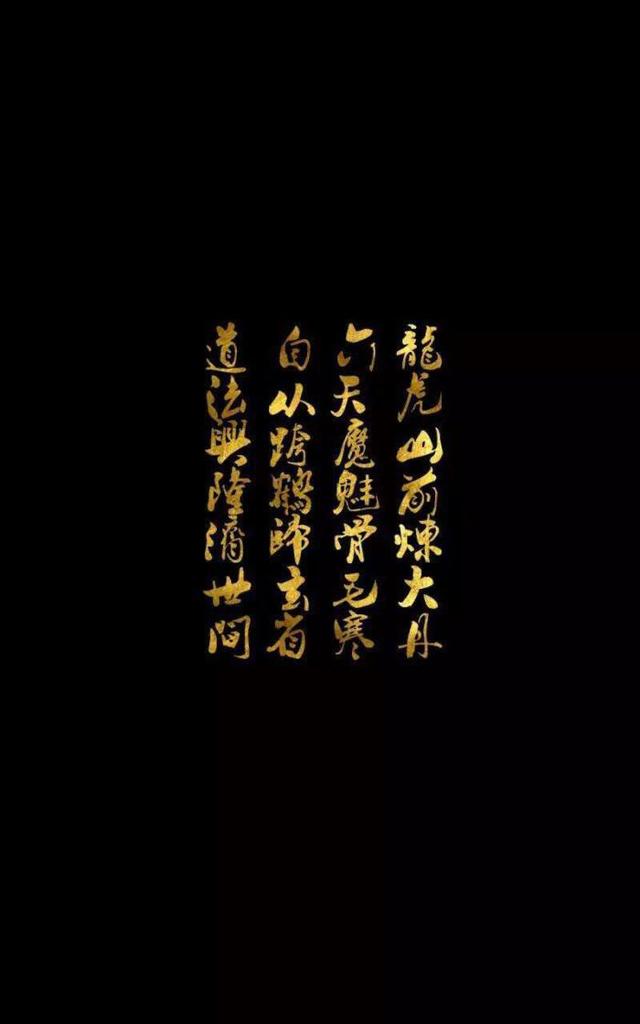 龍虎山前煉大丹
六天魔魅骨毛寒
自从跨鶴歸玄省
道法興隆濟世間